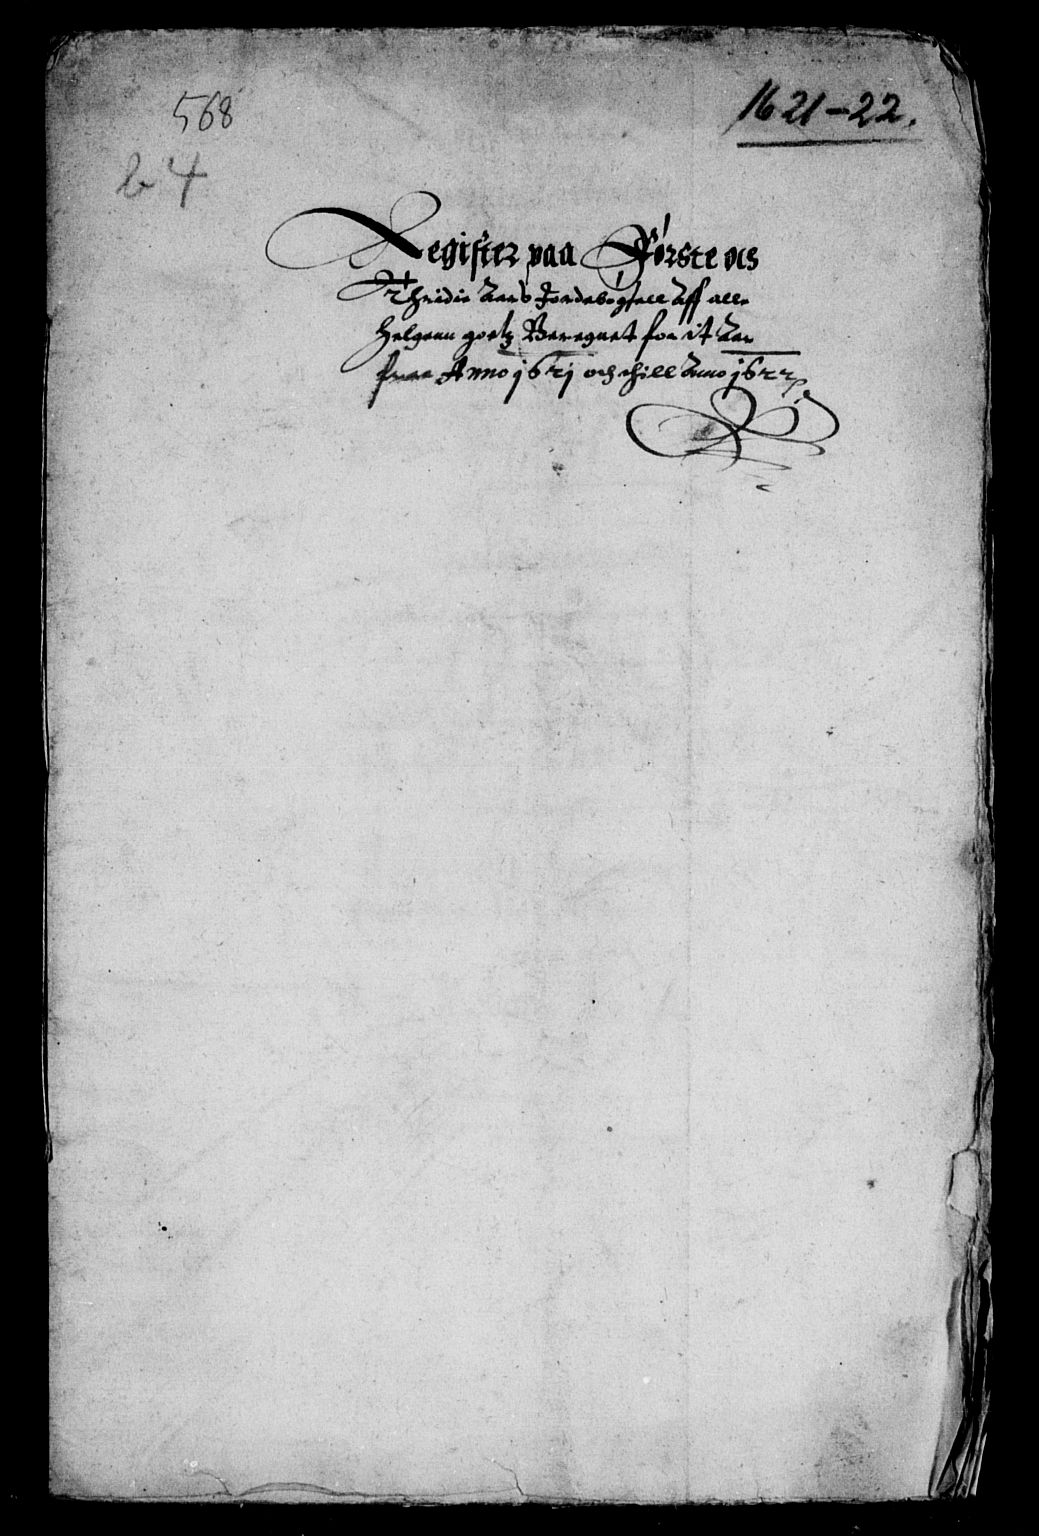 568
1621-22.
b 4
Register paa Første ocs
Thridie Aars Jordebogsell Aff alle
Helgenn goetz Beregnet for it Aar
fraa Anno 1621 och thill Anno 1622